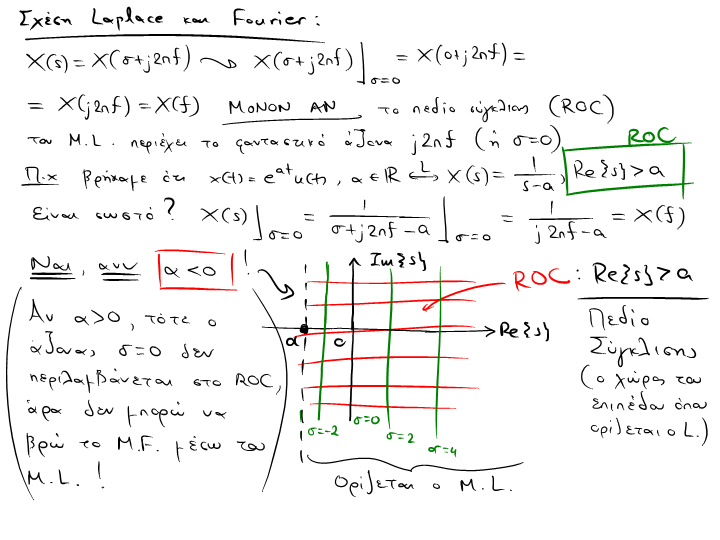 Σχέση Laplace και Fourier:
X(s) = X(σ+j2πf) ⤳ X(σ+j2πf)|σ=0 = X(0+j2πf) =
= X(j2πf) = X(f) ΜΟΝΟΝ ΑΝ το πεδίο σύγκλισης (ROC)
του Μ.L. περιέχει το φανταστικό άξονα j2πf (ή σ=0)
ROC
Π.χ βρήκαμε ότι x(t) = e^{at}u(t), α ∈ ℝ ⟷^L X(s) = 1/(s-a), Re{s} > a
Είναι σωστό? X(s)|σ=0 = 1/(σ+j2πf-a)|σ=0 = 1/(j2πf-a) = X(f)
Ναι, ανν α<0 !
Im{s}
ROC : Re{s}>a
Αν α>0, τότε ο
άξονας σ=0 δεν
περιλαμβάνεται στο ROC,
άρα δεν μπορώ να
βρω το M.F. μέσω του
M.L. !
Re{s}
α 0
σ=-2 σ=0 σ=2 σ=4
Ορίζεται ο M.L.
Πεδίο
Σύγκλισης
(ο χώρος του
επιπέδου όπου
ορίζεται ο L.)